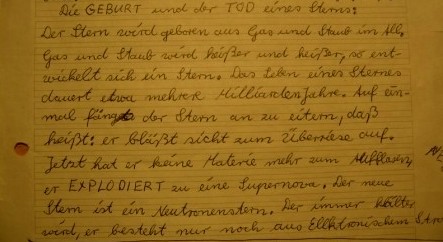 Die GEBURT und der TOD eines Sterns:
Der Stern wird geboren aus Gas und Staub im All,
Gas und Staub wird heißer und heißer, so ent-
wickelt sich ein Stern. Das Leben eines Sternes
dauert etwa mehrere Milliarden Jahre. Auf ein-
mal fängt der Stern an zu eitern, daß
heißt: er bläßt sicht zum Überriese auf.
Jetzt hat er keine Materie mehr zum Aufblasen,
er EXPLODIERT zu eine Supernova. Der neue
Stern ist ein Neutronenstern. Der immer kälter
wird, er besteht nur noch aus Ellktronischem